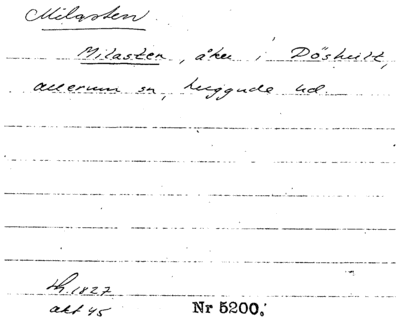 Milasten
Milasten, åker i Döshult,
Allerum sn, Luggude hd.
Lh. 1827
akt 45
Nr 5200.